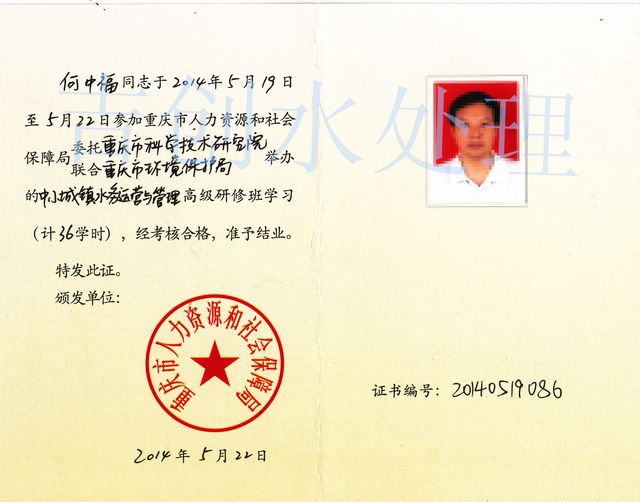 何中福同志于2014年5月19日
至5月22日参加重庆市人力资源和社会
保障局委托重庆市科学技术研究院
联合重庆市环境保护局举办
的中小城镇水务运营与管理高级研修班学习
（计36学时），经考核合格，准予结业。
特发此证。
颁发单位：
重庆市人力资源和社会保障局
2014年5月22日
证书编号：20140519086
吉创水处理